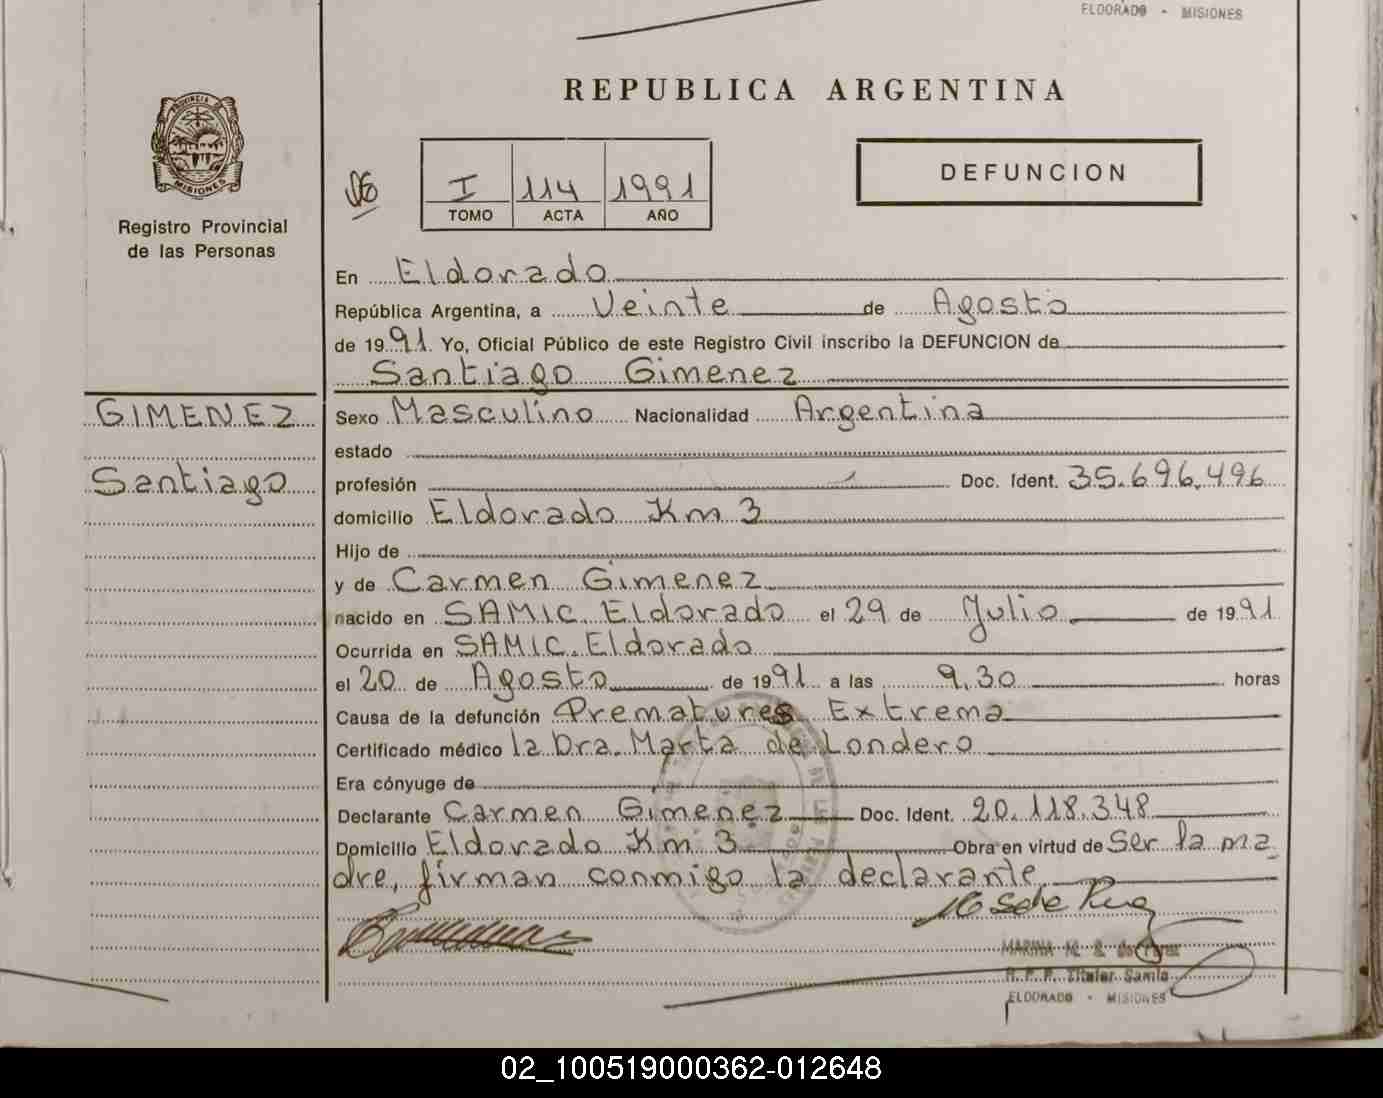 ELDORADO - MISIONES
REPUBLICA ARGENTINA
PROVINCIA DE
MISIONES
Registro Provincial
de las Personas
I 114 1991
TOMO ACTA AÑO
DEFUNCION
En Eldorado
República Argentina, a Veinte de Agosto
de 1991. Yo, Oficial Público de este Registro Civil inscribo la DEFUNCION de
Santiago Gimenez
GIMENEZ
Santiago
Sexo Masculino Nacionalidad Argentina
estado
profesión Doc. Ident. 35.696.496
domicilio Eldorado Km 3
Hijo de
y de Carmen Gimenez
nacido en SAMIC. Eldorado el 29 de Julio de 1991
Ocurrida en SAMIC. Eldorado
el 20 de Agosto de 1991 a las 9.30 horas
Causa de la defunción Prematures Extrema
Certificado médico la Dra. Marta de Londero
Era cónyuge de
Declarante Carmen Gimenez Doc. Ident. 20.118.348
Domicilio Eldorado Km 3 Obra en virtud de Ser la ma
dre, firman conmigo la declarante
MARINA
R. P. P. Titular Samic
ELDORADO - MISIONES
02_100519000362-012648